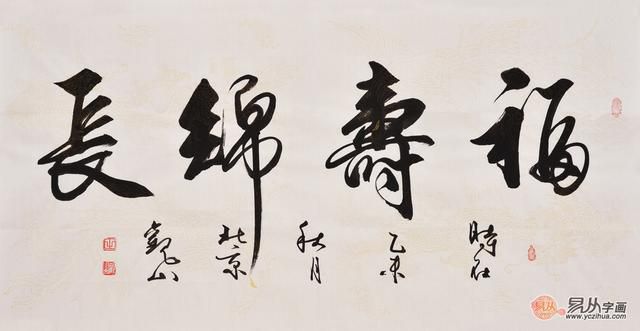 福壽綿長
時在
乙未
秋月
北京
觀山
易从字画
www.yczihua.com